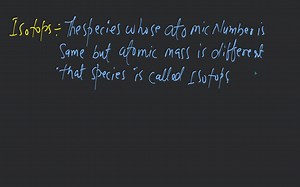 Isotops÷ The species whose atomic Number is
Same but atomic mass is different
that species is called Isotops